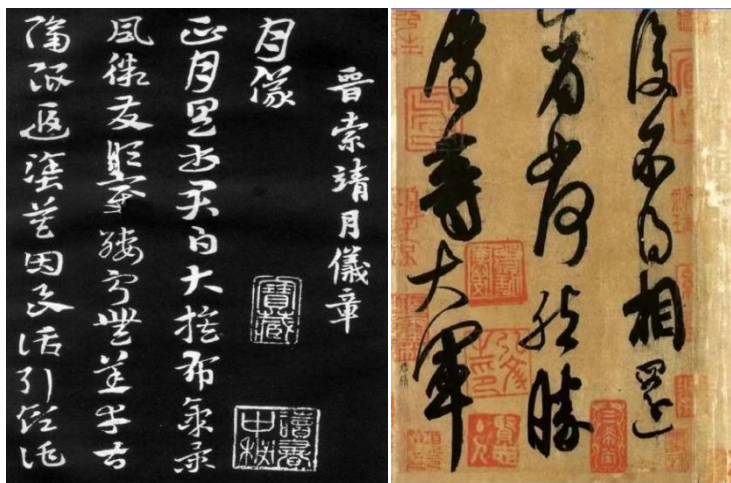 晉索靖月儀章
月儀
正月具書君白大蔟布氣景
風微發順變綏寧無恙幸甚
隔限遐塗莫因良話引領託
寶藏
讀書
中秘
復不得相還
省如何然勝
慶等大軍